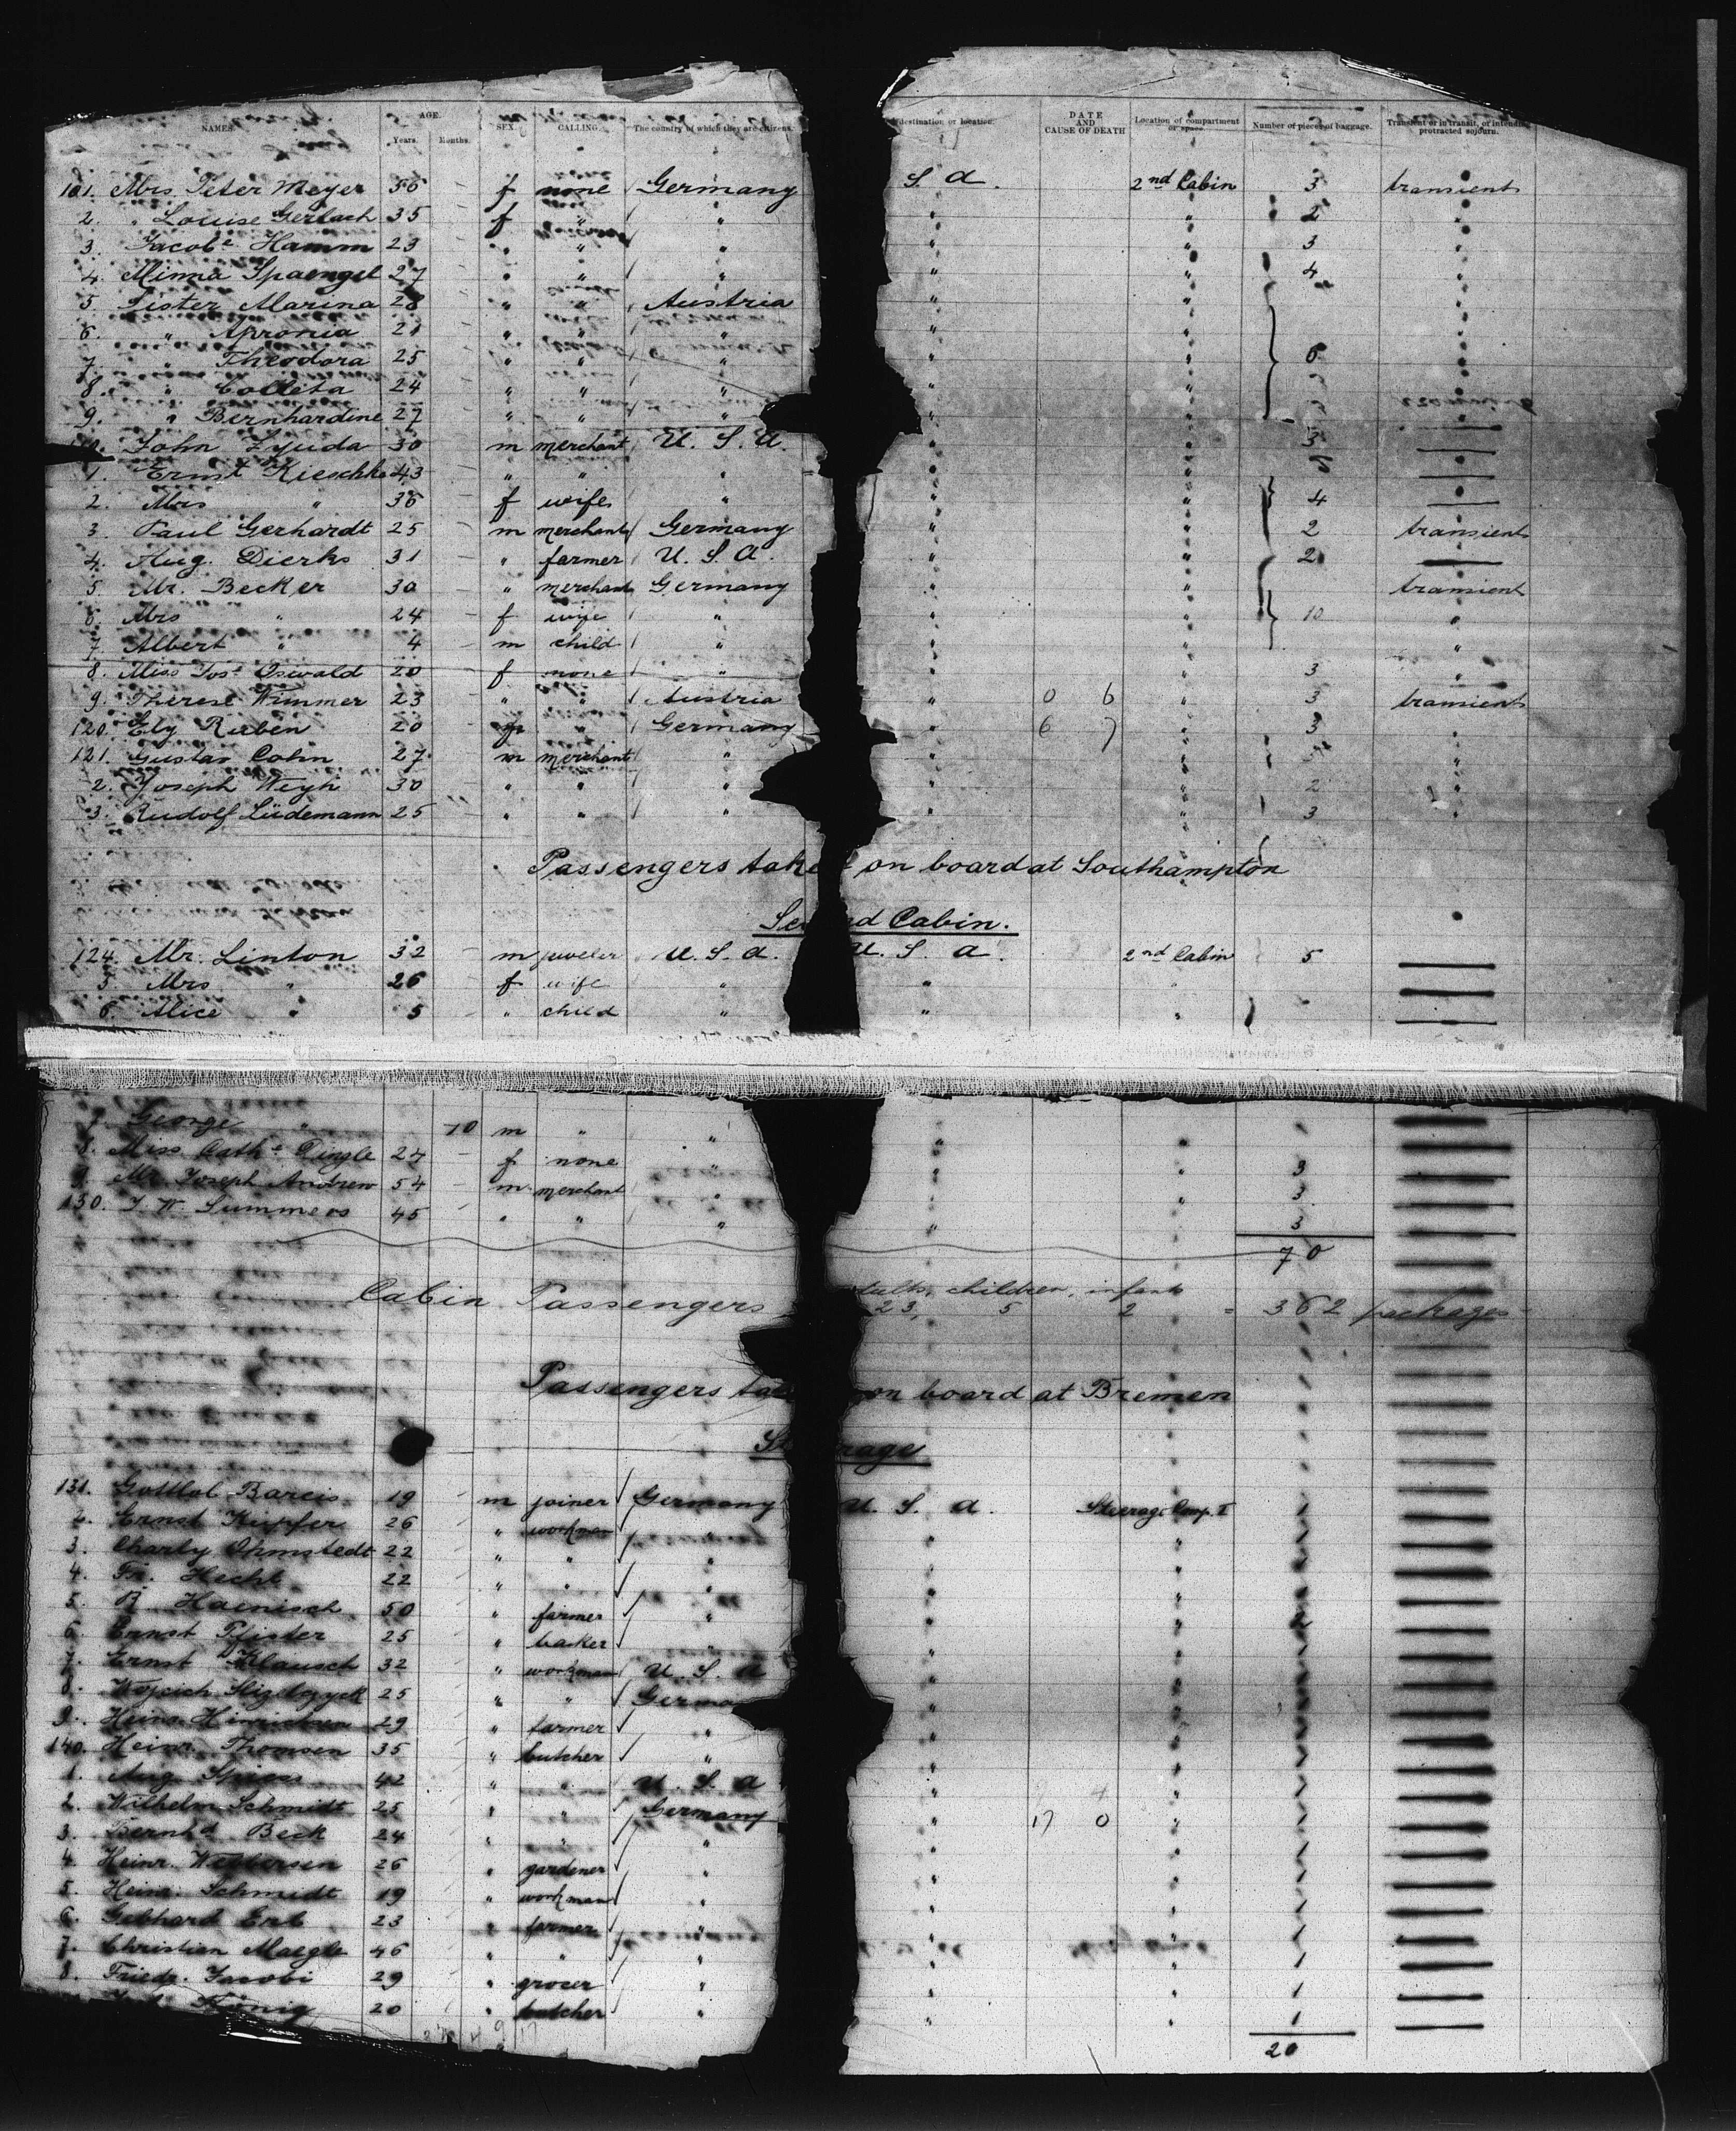 NAMES. AGE. Years. Months. SEX. CALLING. The country of which they are citizens. destination or location. DATE AND CAUSE OF DEATH Location of compartment or space. Number of pieces of baggage. Transient or in transit, or intending protracted sojourn.
101. Mrs. Peter Meyer 56 - f none Germany S. A. 2nd Cabin 3 transient
2. " Louise Gerlach 35 - f " " " " 2 "
3. Jacobe Hamm 23 - " " " " " 3 "
4. Minna Spaengel 27 - " " " " " 4 "
5. Sister Marina 28 - " " Austria " " "
6. " Apronia 21 - " " " " " "
7. " Theodora 25 - " " " " " 6 "
8. " Colleta 24 - " " " " " "
9. " Bernhardine 27 - " " " " " "
110. John Zyuda 30 - m merchant U. S. A. " " 3
1. Ernst Kieschke 43 - " " " " " 5
2. Mrs " 36 - f wife " " " 4
3. Paul Gerhardt 25 - m merchant Germany " " 2 transient
4. Aug. Dierks 31 - " farmer U. S. A. " " 2
5. Mr. Becker 30 " merchant Germany " " transient
6. Mrs " 24 - f wife " " " 10 "
7. Albert " 4 - m child " " " "
8. Miss Jose Oswald 20 - f none " " " 3 "
9. Therese Wimmer 23 - " " Austria " 0 6 " 3 transient
120. Ely Ruben 20 - " Germany " 6 7 " 3 "
121. Gustav Cohn 27 - m merchant " " " "
2. Joseph Weyh 30 - " " " " " 2 "
3. Rudolf Lüdemann 25 " " " " " 3 "
Passengers take on board at Southampton
Se nd Cabin.
124. Mr. Linton 32 - m juweler U. S. A. U. S. A. 2nd Cabin 5
5. Mrs " 26 - f wife " " "
6. Alice " 5 " child " " "
7. George " 10 m " " " "
8. Miss Cathe Dingle 27 - f none " " " 3
9. Mr. Joseph Andrew 54 - m merchant " " " 3
130. J. W. Summers 45 - " " " " 3
70
Cabin Passengers dults, children, infants
23, 5 2 = 362 packages
Passengers ta on board at Bremen
St rage
131. Gottlob Bareis 19 m joiner Germany U. S. A. Steerage Comp. I 1
2. Ernst Kupfer 26 " workman " " " 1
3. Charly Ohmstedt 22 " " " " "
4. Fr. Hecht 22 " " " " "
5. R. Haenisch 50 " farmer " " " 2
6. Ernst Pfister 25 " baker " " " 1
7. Ernst Klausch 32 " workman U. S. A " "
8. Wojcich 25 " " Germa " "
9. Heinr. Hinrichsen 29 " farmer " " "
140. Heinr. Thomsen 35 " butcher " " " 1
1. Aug. 42 " " U. S. A " " 1
2. Wilhelm Schmidt 25 " " Germany " 17 0 " 1
3. Bernhd Beck 24 " " " " " 1
4. Heinr. 26 " gardener " " " 1
5. Heinr. Schmidt 19 " workman " " " 1
6. Gebhard Erb 23 " farmer " " " 1
7. Christian Maegle 46 " " " " " 1
8. Friedr. Jacobi 29 " grocer " " " 1
König 20 " butcher " " " 1
20